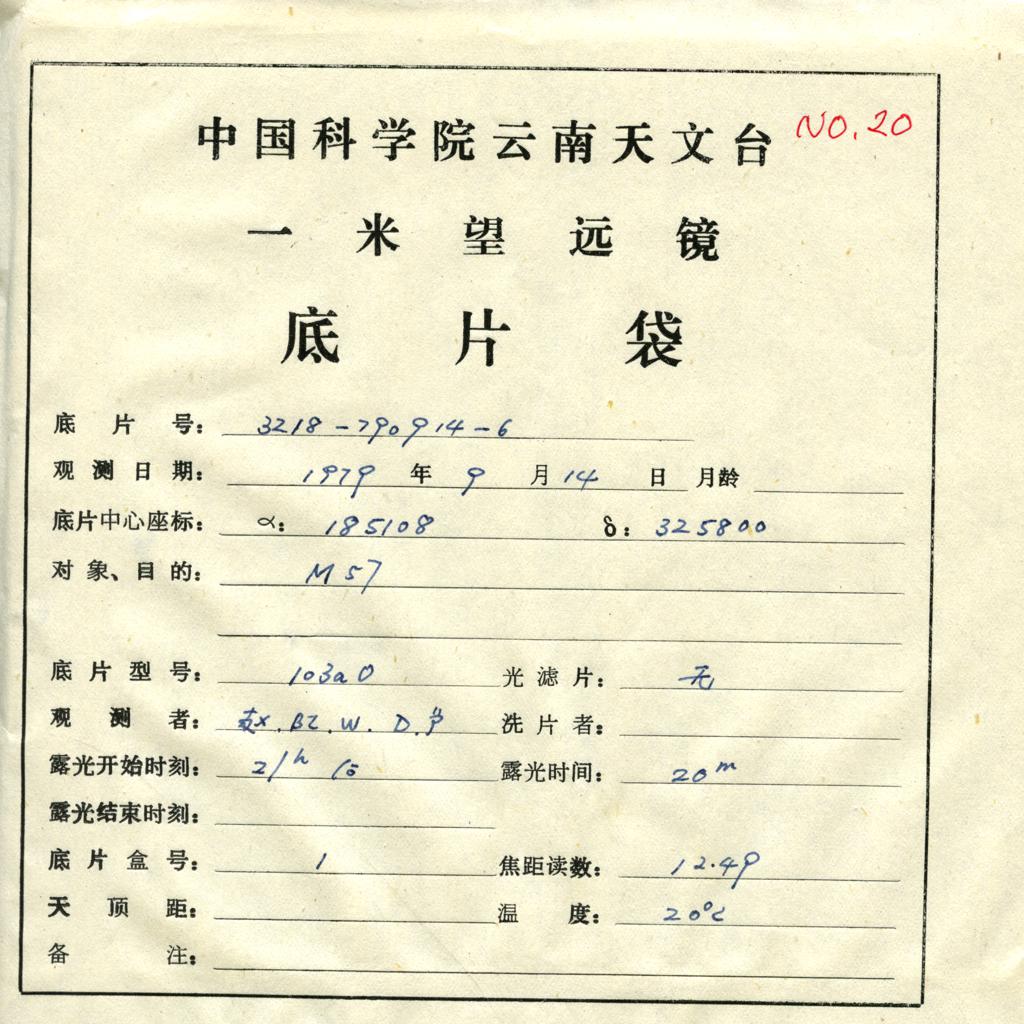 中国科学院云南天文台 NO.20
一米望远镜
底片袋
底片号: 3218-790914-6
观测日期: 1979 年 9 月 14 日 月龄
底片中心座标: α: 185108 δ: 325800
对象、目的: M57
底片型号: 103aO 光滤片: 无
观测者: BZ. W. D. 洗片者:
露光开始时刻: 21h 15 露光时间: 20m
露光结束时刻:
底片盒号: 1 焦距读数: 12.49
天顶距: 温度: 20°C
备注: